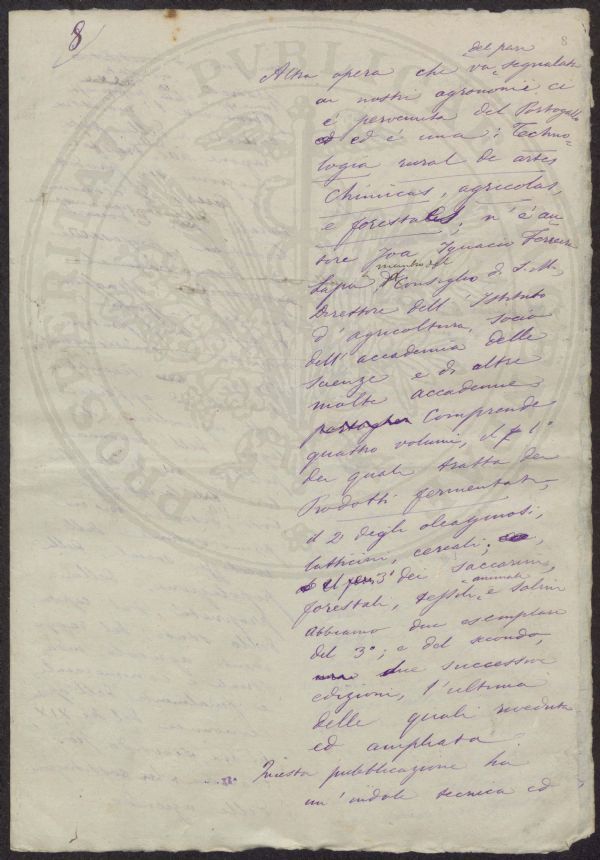 8
8
del pari
Altra opera che va segnalata
ai nostri agronomi è ci
è pervenuta del Portogallo
ed è una: Techno-
logia rural de artes
chimicas, agricolas,
e forestales; n'è au
tore Joa Ignacio Ferreira
membro del
Lapa Consiglio di S. M.
Direttore dell'Istituto
d'agricoltura, socio
dell'accademia delle
scienze e di altre
molte accademie
Comprende
quattro volumi, il 1º
dei quali tratta dei
Prodotti fermentati,
il 2 degli oleaginosi,
latticini, cereali;
il 3º dei saccarini,
animali
forestali, tessili e salini
Abbiamo due esemplari
del 3º; e del secondo,
due successive
edizioni, l'ultima
delle quali riveduta
ed ampliata
Questa pubblicazione ha
un'indole tecnica ed